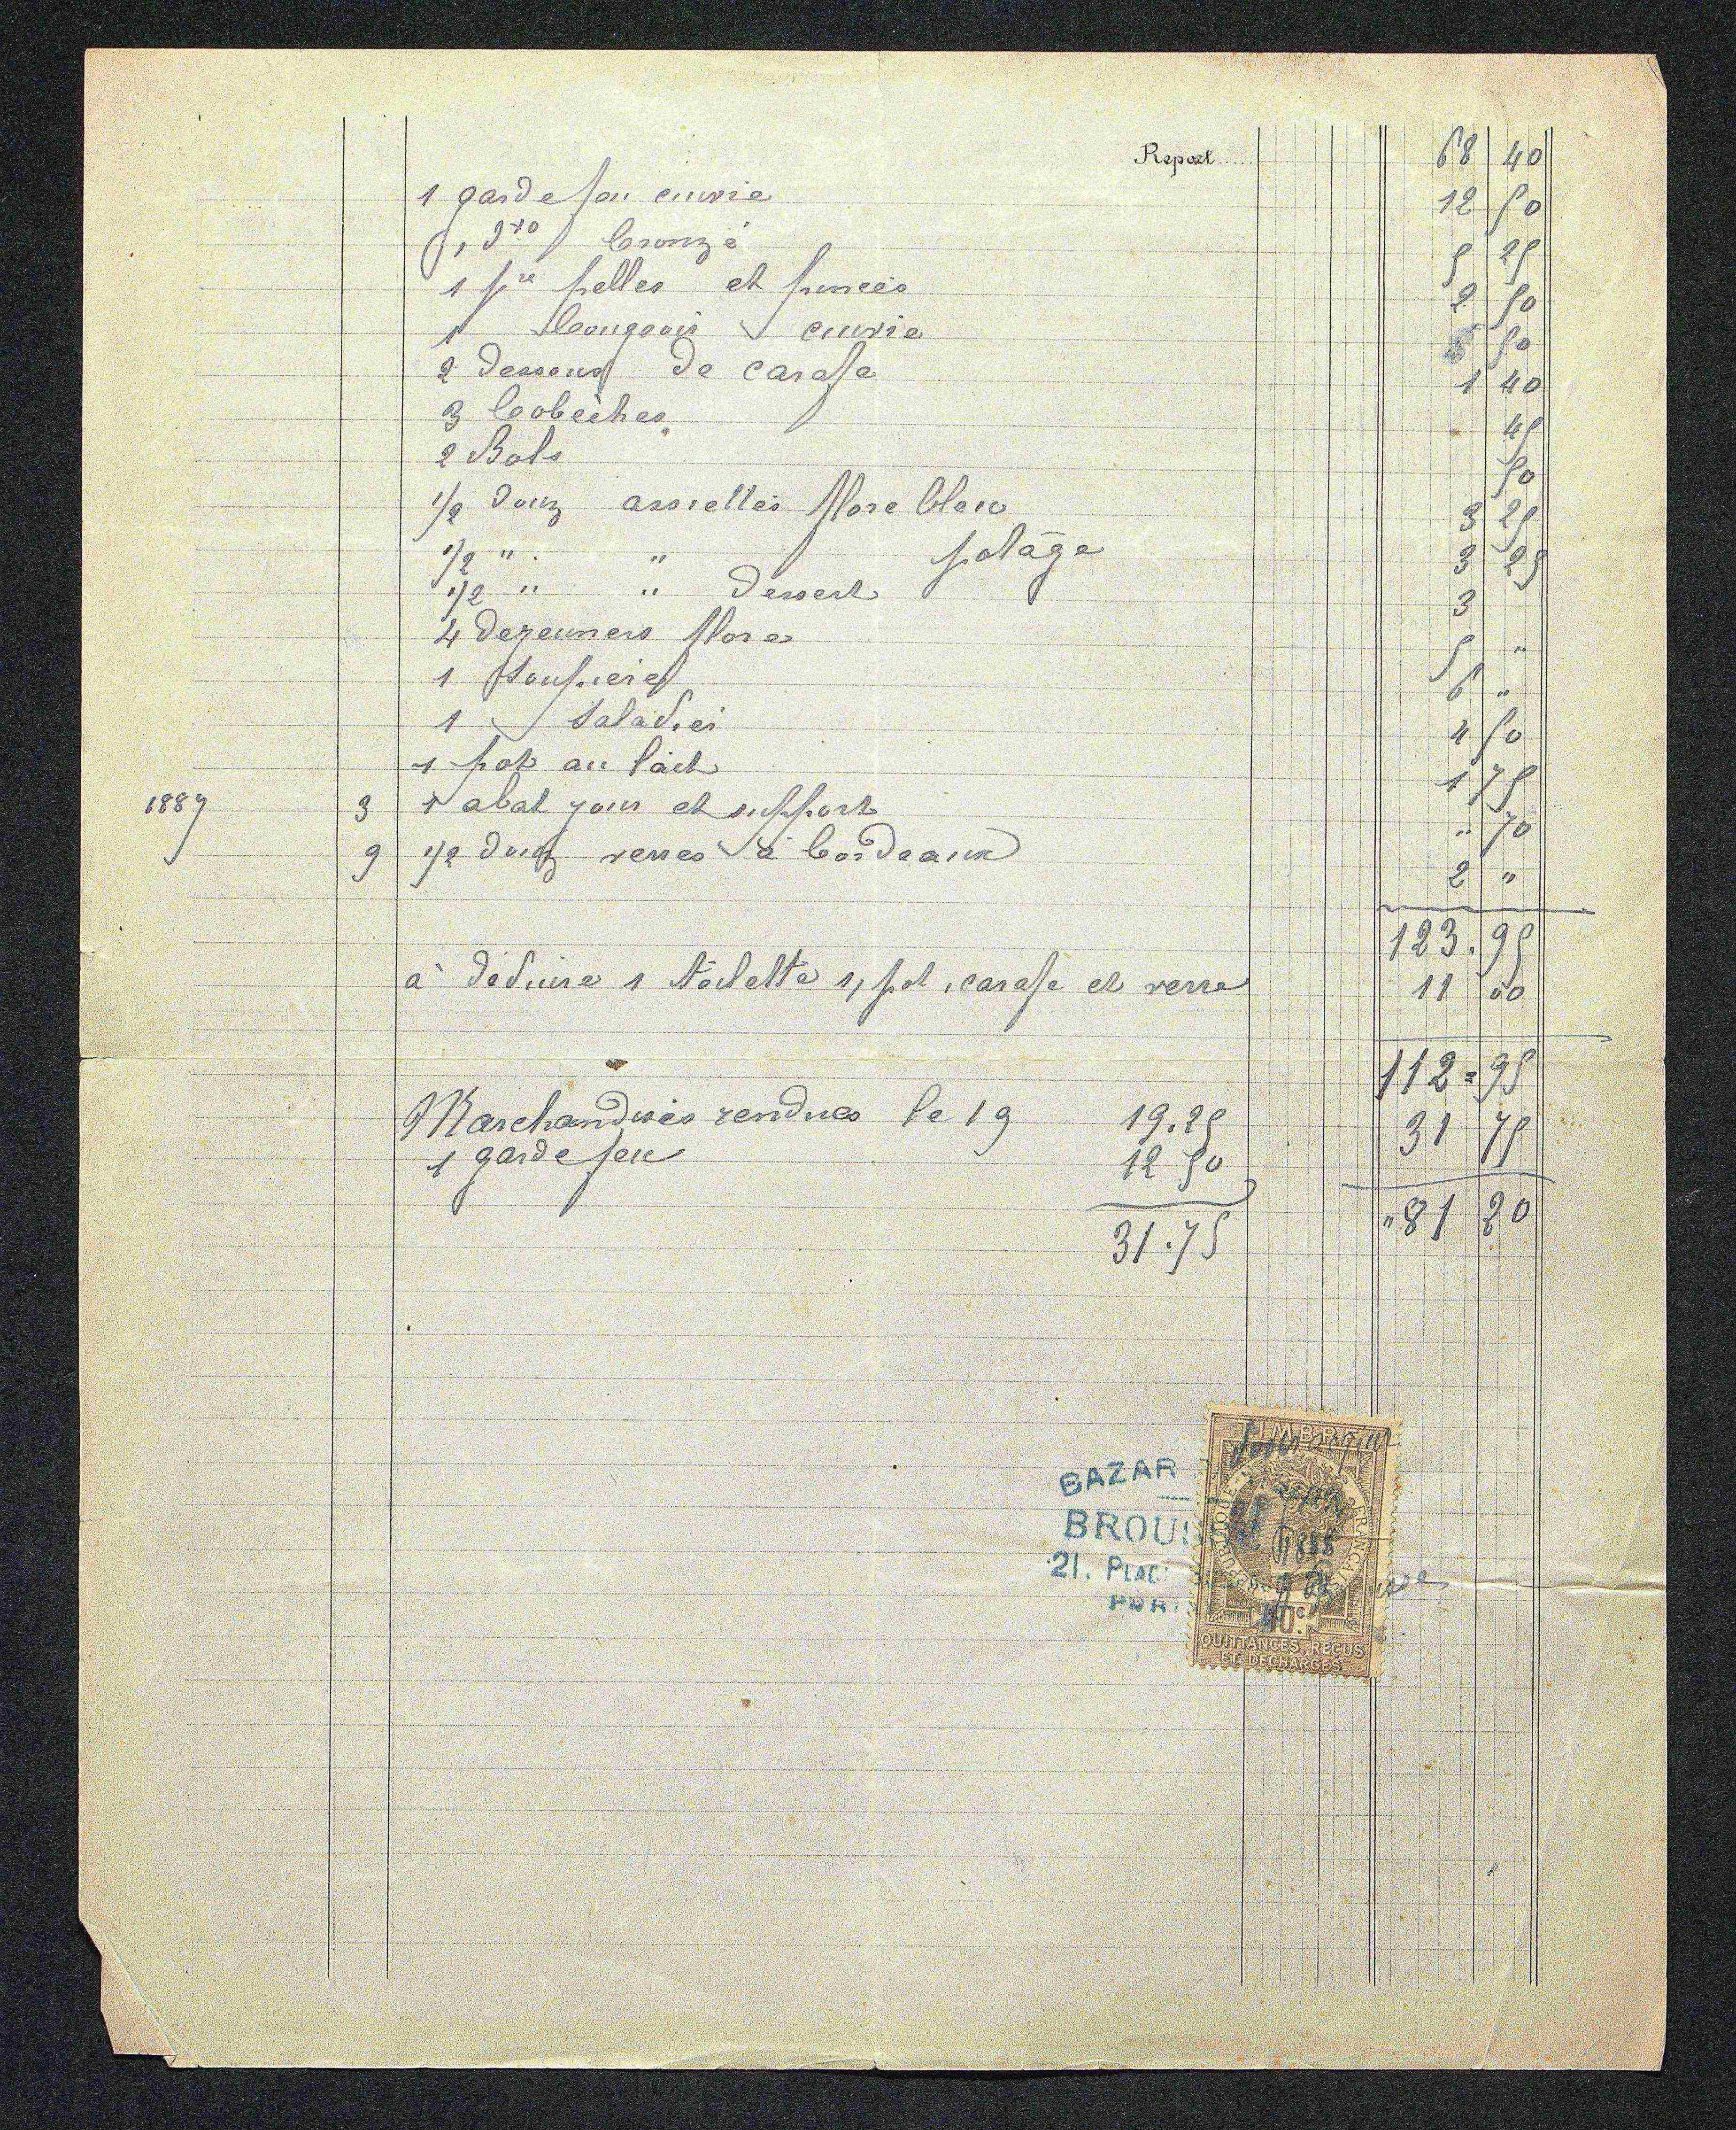 Report 68 40
1 garde feu cuivre 12 50
1 dto bronzé 5 25
1 pre pelles et pinces 2 50
1 bougeoir cuivre 50
2 dessous de carafe 1 40
3 bobèches 45
2 Bols 50
1/2 douz assiettes flore bleu 3 25
1/2 " " potage 3 25
1/2 " " dessert 3
4 dejeuners flore 5 "
1 soupiere 6 "
1 saladier 4 50
1 pot au lait 1 75
1887 3 1 abat jour et support " 70
9 1/2 douz verres à bordeaux 2 "
123.95
à déduire 1 toilette 1 pot, carafe et verre 11 00
112=95
Marchandises rendues le 19 19.25 31 75
1 garde feu 12 50
31.75
"81 20
BAZAR
BROU
21. PLAC
TIMBRE
REPUBLIQUE FRANCAISE
1888
10c.
QUITTANCES, REÇUS
ET DÉCHARGES